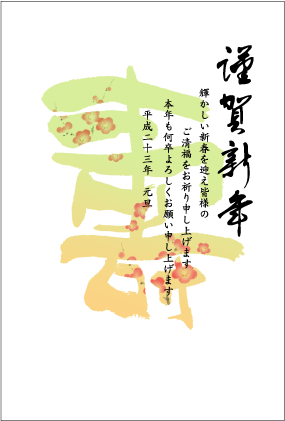 謹賀新年
輝かしい新春を迎え皆様の
ご清福をお祈り申し上げます
本年も何卒よろしくお願い申し上げます
平成二十三年 元旦
寿